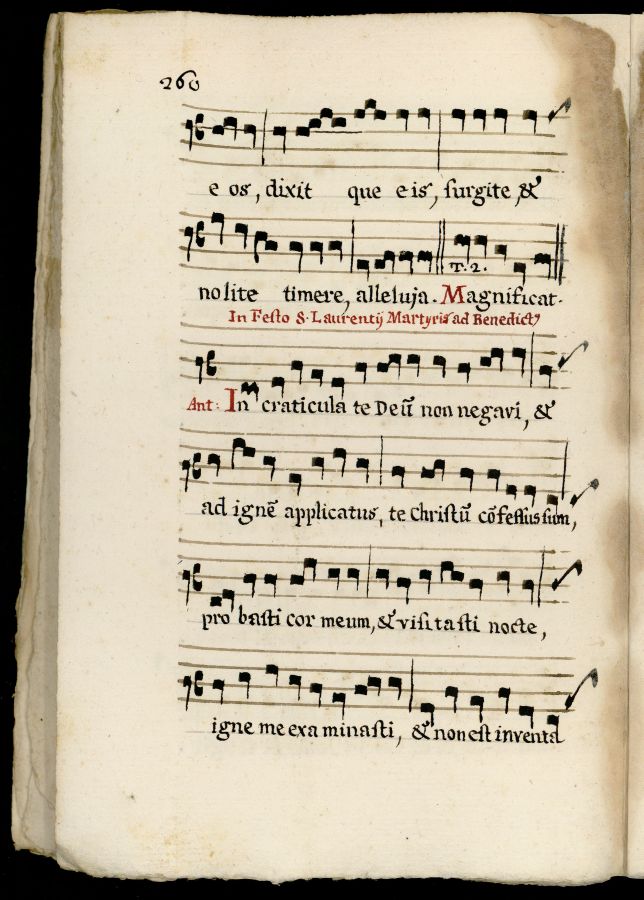 260
e os, dixit que eis, surgite, &
T. 2.
nolite timere, alleluja. Magnificat.
In Festo S. Laurentij Martyris ad Benedict9
Ant: In craticula te Deū non negavi, &
ad ignē applicatus, te Christū cōfessus sum,
probasti cor meum, & visitasti nocte,
igne me exa minasti, & non est inventa